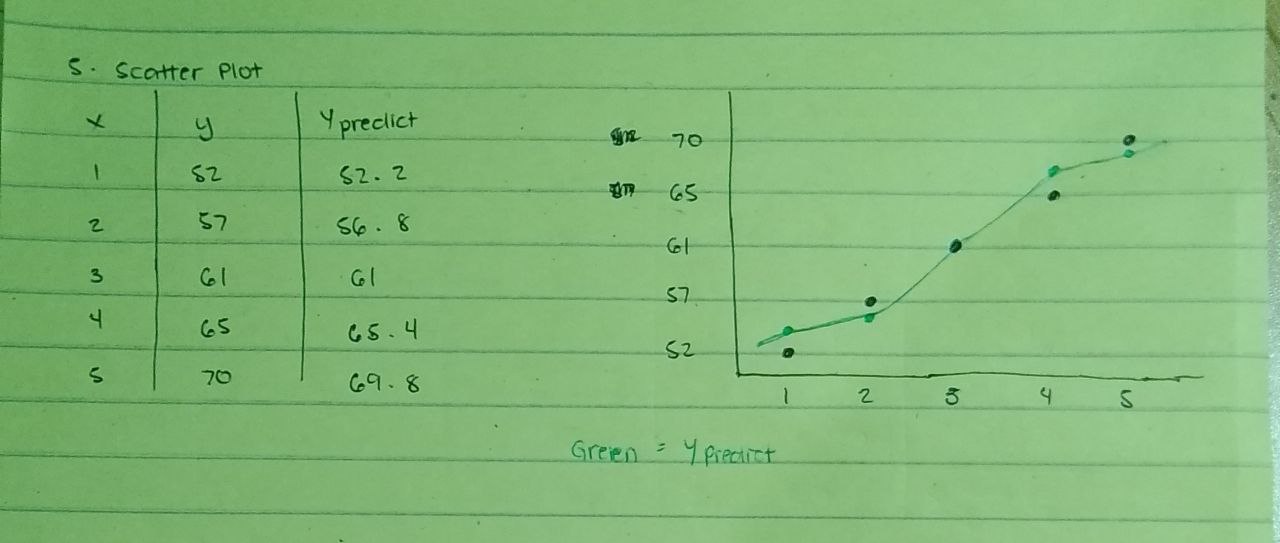 5. Scatter Plot
x y Y predict
1 52 52.2
2 57 56.8
3 61 61
4 65 65.4
5 70 69.8
70
65
61
57
52
1 2 3 4 5
Green = Y predict